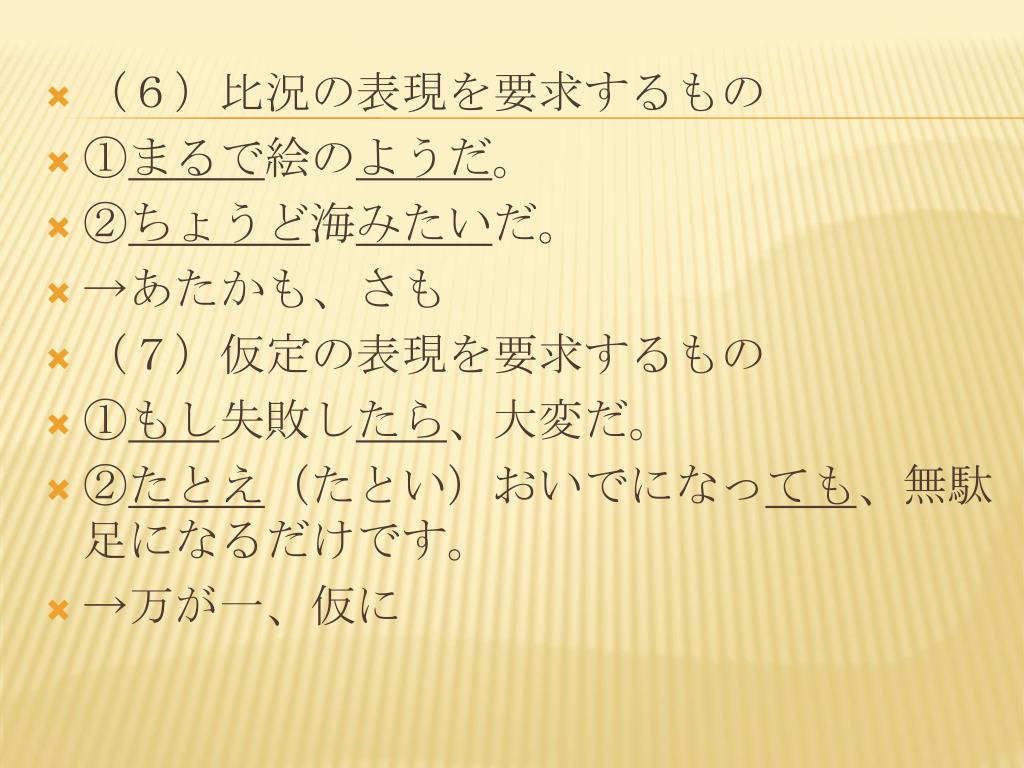 （６）比況の表現を要求するもの
①まるで絵のようだ。
②ちょうど海みたいだ。
→あたかも、さも
（７）仮定の表現を要求するもの
①もし失敗したら、大変だ。
②たとえ（たとい）おいでになっても、無駄
足になるだけです。
→万が一、仮に